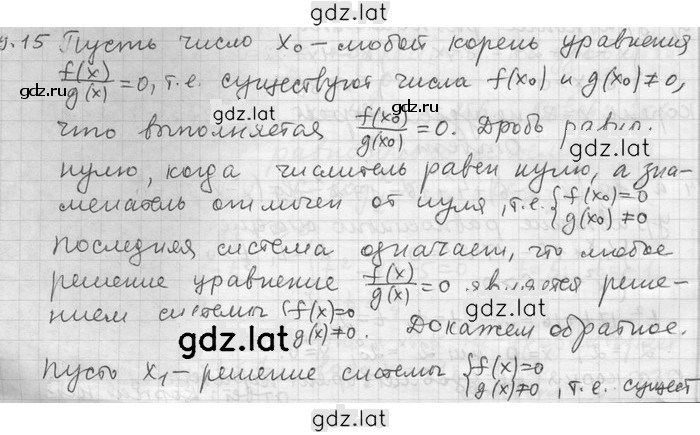 gdz.lat
9.15 Пусть число x₀ – любой корень уравнения
f(x)/g(x) = 0, т.е. существуют числа f(x₀) и g(x₀) ≠ 0,
gdz.lat
что выполняется f(x₀)/g(x₀) = 0. Дробь равн.
нулю, когда числитель равен нулю, а зна-
менатель отличен от нуля, т.е. {f(x₀) = 0
g(x₀) ≠ 0
gdz.lat
последняя система означает, что любое
решение уравнение f(x)/g(x) = 0 является реше-
нием системы {f(x) = 0
g(x) ≠ 0. Докажем обратное.
gdz.lat
пусть x₁ – решение системы {f(x) = 0
g(x) ≠ 0, т.е. сущест
gdz.lat